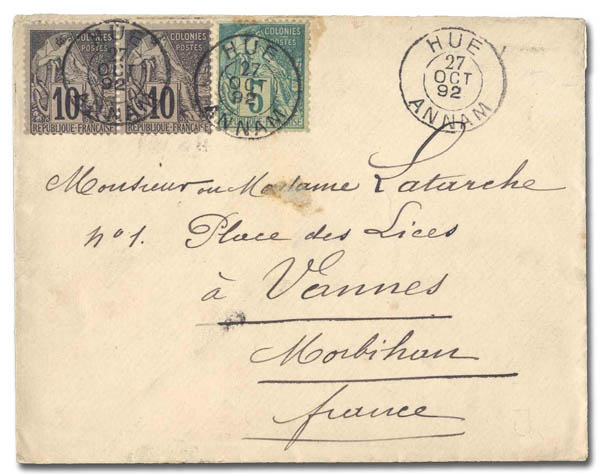 COLONIES
POSTES
10
RÉPUBLIQUE FRANÇAISE
COLONIES
POSTES
10
RÉPUBLIQUE FRANÇAISE
COLONIES
5
HUE
27
OCT
92
ANNAM
HUE
27
OCT
92
ANNAM
HUE
27
OCT
92
ANNAM
Monsieur ou Madame Latarche
no 1. Place des Lices
à Vannes
Morbihan
france